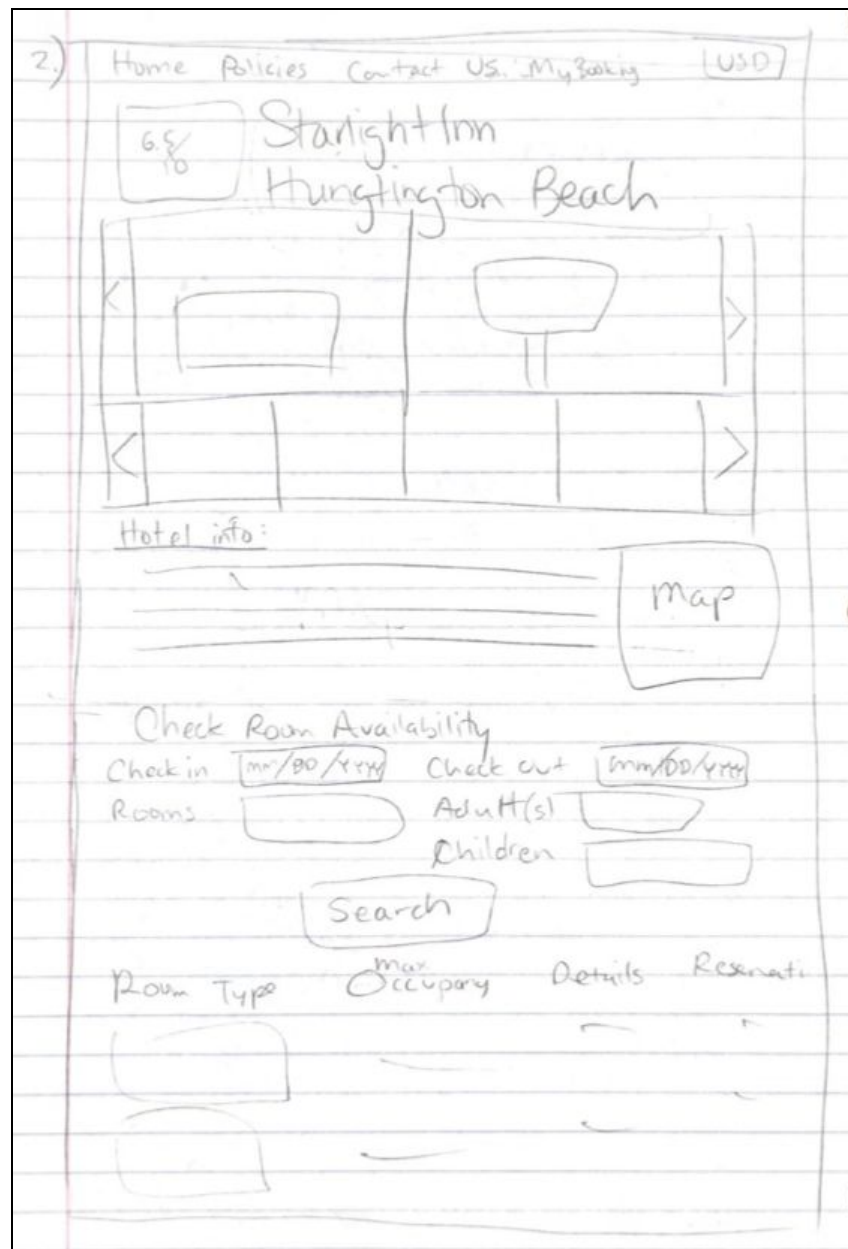 2.)
Home Policies Contact US. My Booking USD
6.5/10
Starlight Inn
Hungtington Beach
<
>
<
>
Hotel info:
Map
Check Room Availability
Check in mm/DD/YYYY Check out mm/DD/YYYY
Rooms Adult(s)
Children
Search
Room Type Max Occupany Details Reservati